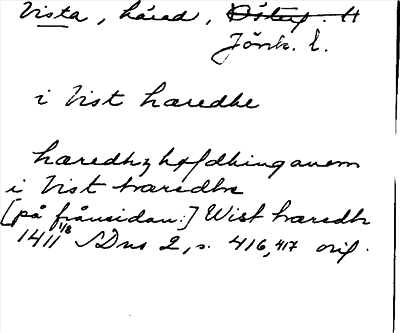 Vista, härad, Österg. ll
Jönk. l.
i Vist hæredhe
hæredhz høfdhinganom
i Vist hæredhe
[på frånsidan:] Wist hæredh
1411 1/8 SDns 2, s. 416, 417 orig.